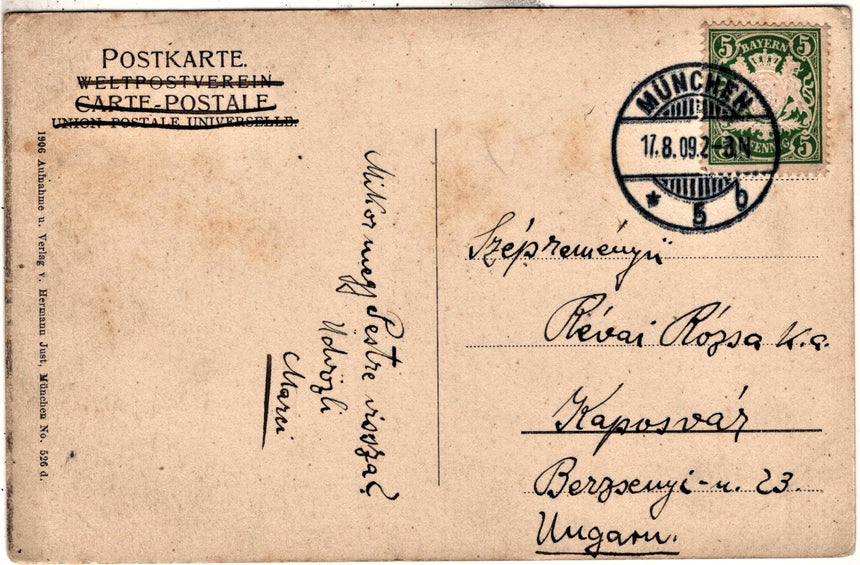 POSTKARTE.
WELTPOSTVEREIN
CARTE-POSTALE
UNION POSTALE UNIVERSELLE.
1906 Aufnahme u. Verlag v. Hermann Just, München No. 526 d.
Mikor megy Pestre vissza?
Üdvözli
Marci
5 BAYERN 5
PFENNIG 5
MÜNCHEN
17.8.09.2-3N
* 5 b
Szépreményű
Révai Rózsa k.a.
Kaposvár
Berzsenyi-u. 23.
Ungarn.